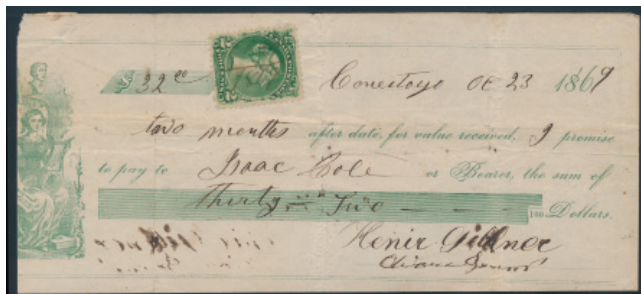 $32 00 Conestogo Oc 23 1869
two months after date, for value received, I promise
to pay to Isaac Cole or Bearer, the sum of
Thirty Two 100 Dollars.
Henir